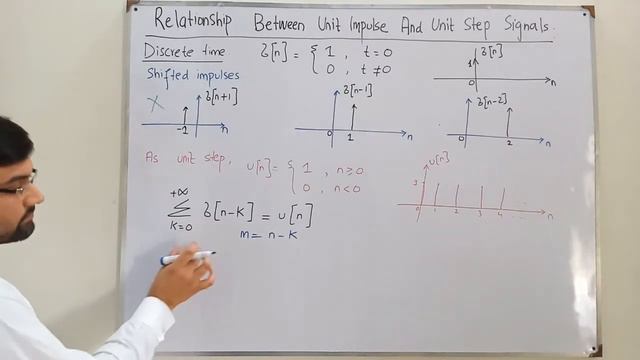 Relationship Between Unit Impulse And Unit Step Signals.
Discrete time
δ[n] = { 1 , t = 0
0 , t ≠ 0
δ[n]
1
0
n
Shifted impulses
δ[n+1]
-1
n
δ[n-1]
0
1
n
δ[n-2]
0
2
n
As unit step, u[n] = { 1 , n ≥ 0
0 , n < 0
u[n]
0 1 2 3 4 ... n
+∞
Σ δ[n-K] = u[n]
K=0
m = n - K